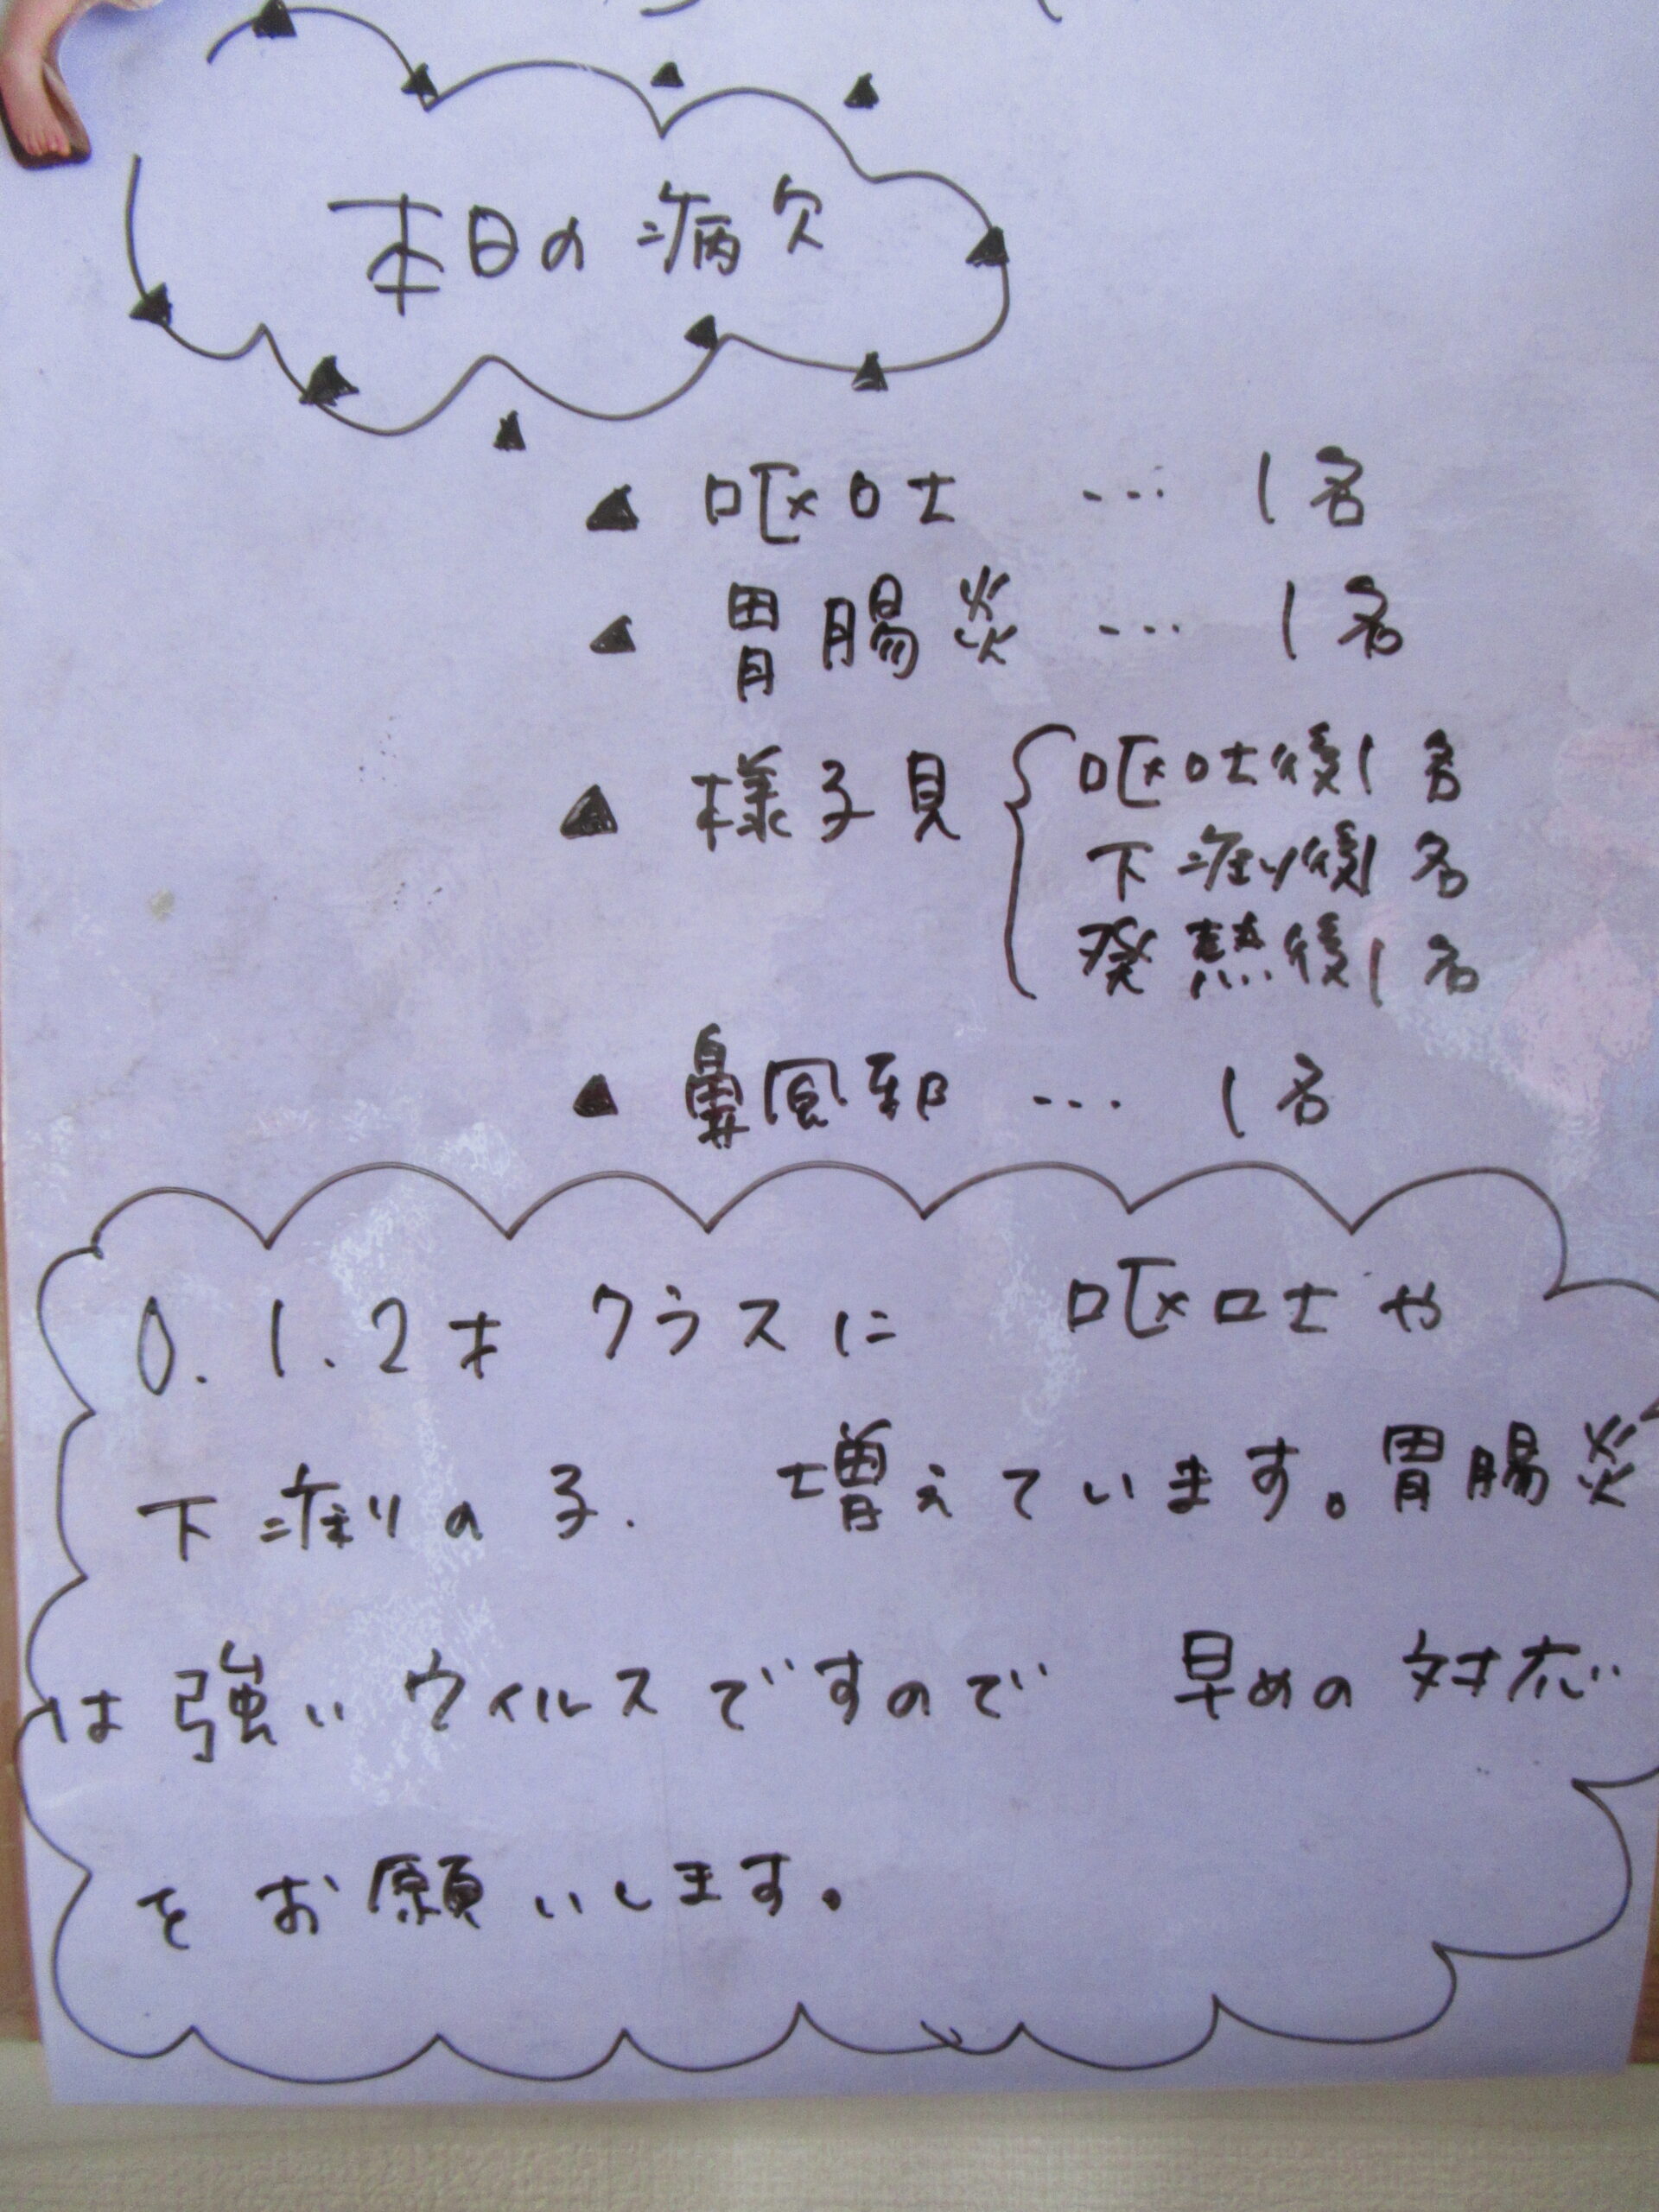 本日の病欠
▲ 嘔吐 … 1名
▲ 胃腸炎 … 1名
▲ 様子見 { 嘔吐後1名
下痢後1名
発熱後1名
▲ 鼻風邪 … 1名
0.1.2才 クラスに 嘔吐や
下痢の子. 増えています。胃腸炎
は強いウィルスですので 早めの対応
をお願いします。